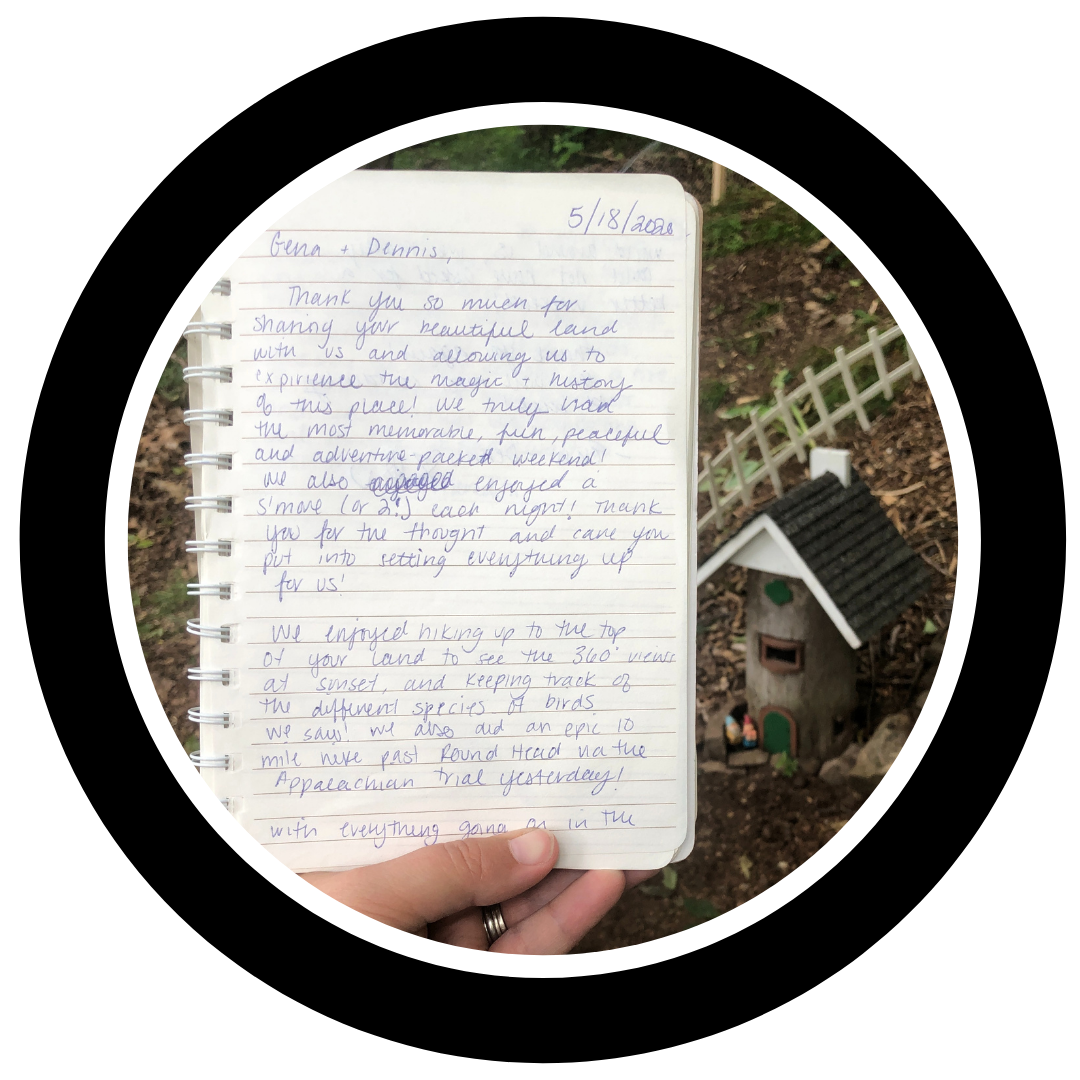 5/18/2020
Gena + Dennis,
Thank you so much for
sharing your beautiful land
with us and allowing us to
expirience the magic + history
of this place! We truly had
the most memorable, fun, peaceful
and adventure-packed weekend!
We also enjoyed a
s'more (or 2!) each night! Thank
you for the thought and care you
put into setting everything up
for us!
We enjoyed hiking up to the top
of your land to see the 360° views
at sunset, and keeping track of
the different species of birds
we saw! We also did an epic 10
mile hike past Round Head via the
Appalachian Trial yesterday!
with everything going on in the